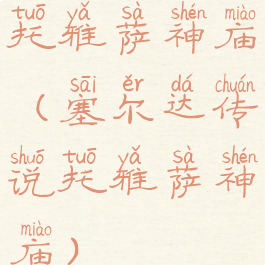 tuō yǎ sà shén miào
托雅萨神庙
sāi ěr dá chuán
（塞尔达传
shuō tuō yǎ sà shén
说托雅萨神
miào
庙）